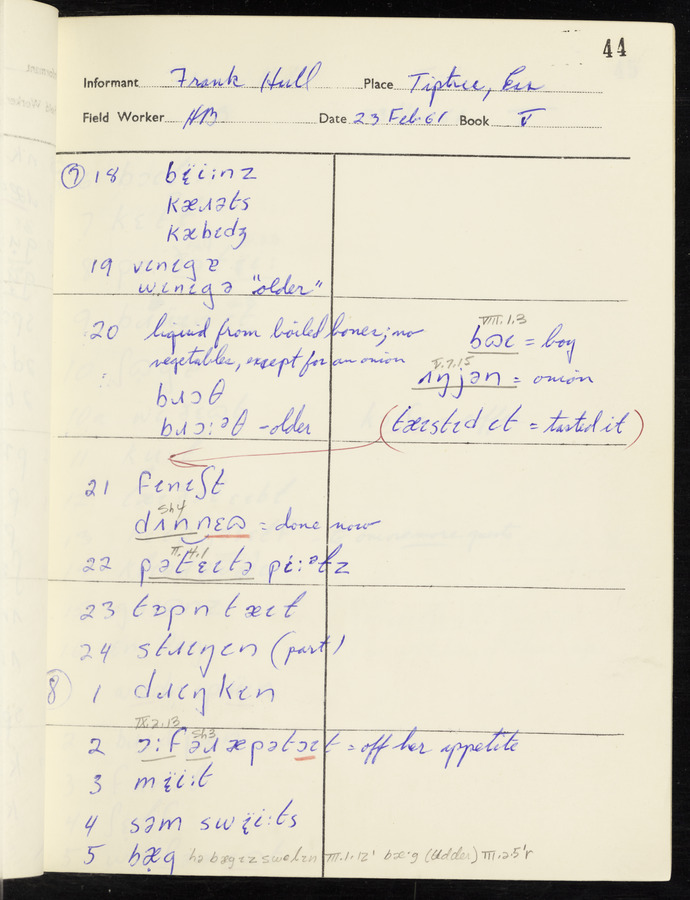 44
Informant Frank Hull Place Tiptree, Ess
Field Worker HB Date 23 Feb. 61 Book V
⑦ 18 bɛ̈iːnz
kæɹəts
kæbɪdʒ
19 vɪnɪgɐ
wɪnɪgə "older"
20 liquid from boiled bones; no
vegetables, except for an onion
bɹɔθ
bɹɔːᵊθ - older
VIII.1.3
bɷɪ = boy
V.7.15
ʌŋjən = onion
(tæɪstɪd ɪt = tasted it)
21 fɪnɪʃt
Sh4
dʌnnɛɷ = done now
II.4.1
22 pətɛɪtə pɪːᵊtz
23 tɒpn tæɪt
24 stɹɪŋɪn (part)
⑧ 1 dɹɪŋkɪn
IX.2.13 Sh3
2 ɔːf əɹ æpətɔɪt = off her appetite
3 mɛ̈iːt
4 səm swɛ̈iːts
5 bæg bægzz swelɪn III.1.12' bæːg (Udder) III.2.5'r